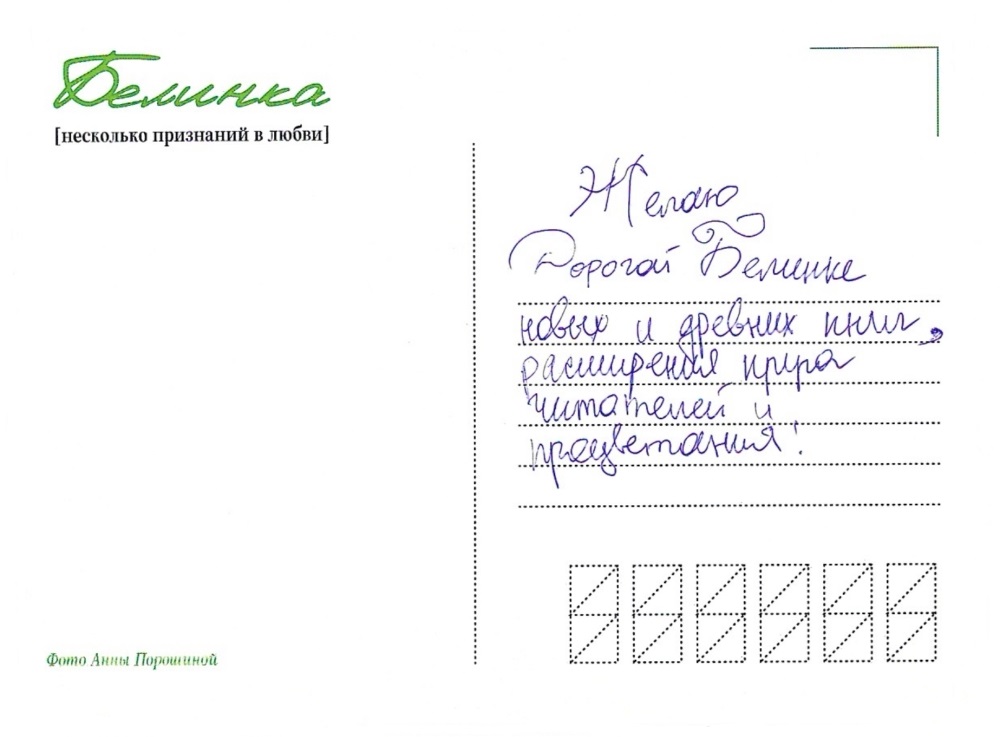 Белинка
[несколько признаний в любви]
Желаю
Дорогой Белинке
новых и древних книг,
расширения круга
читателей и
процветания!
Фото Анны Порошиной